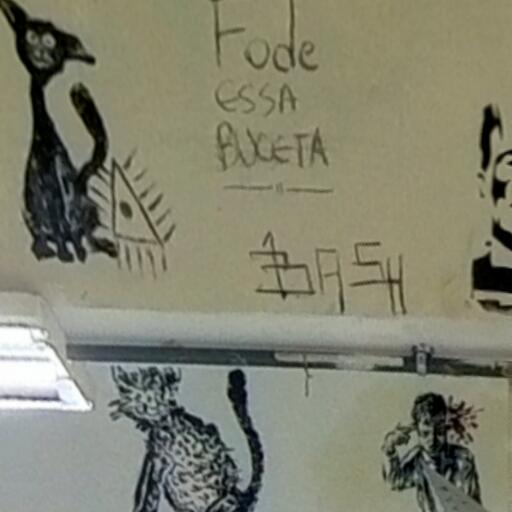 Fode
ESSA
BUCETA
BASH